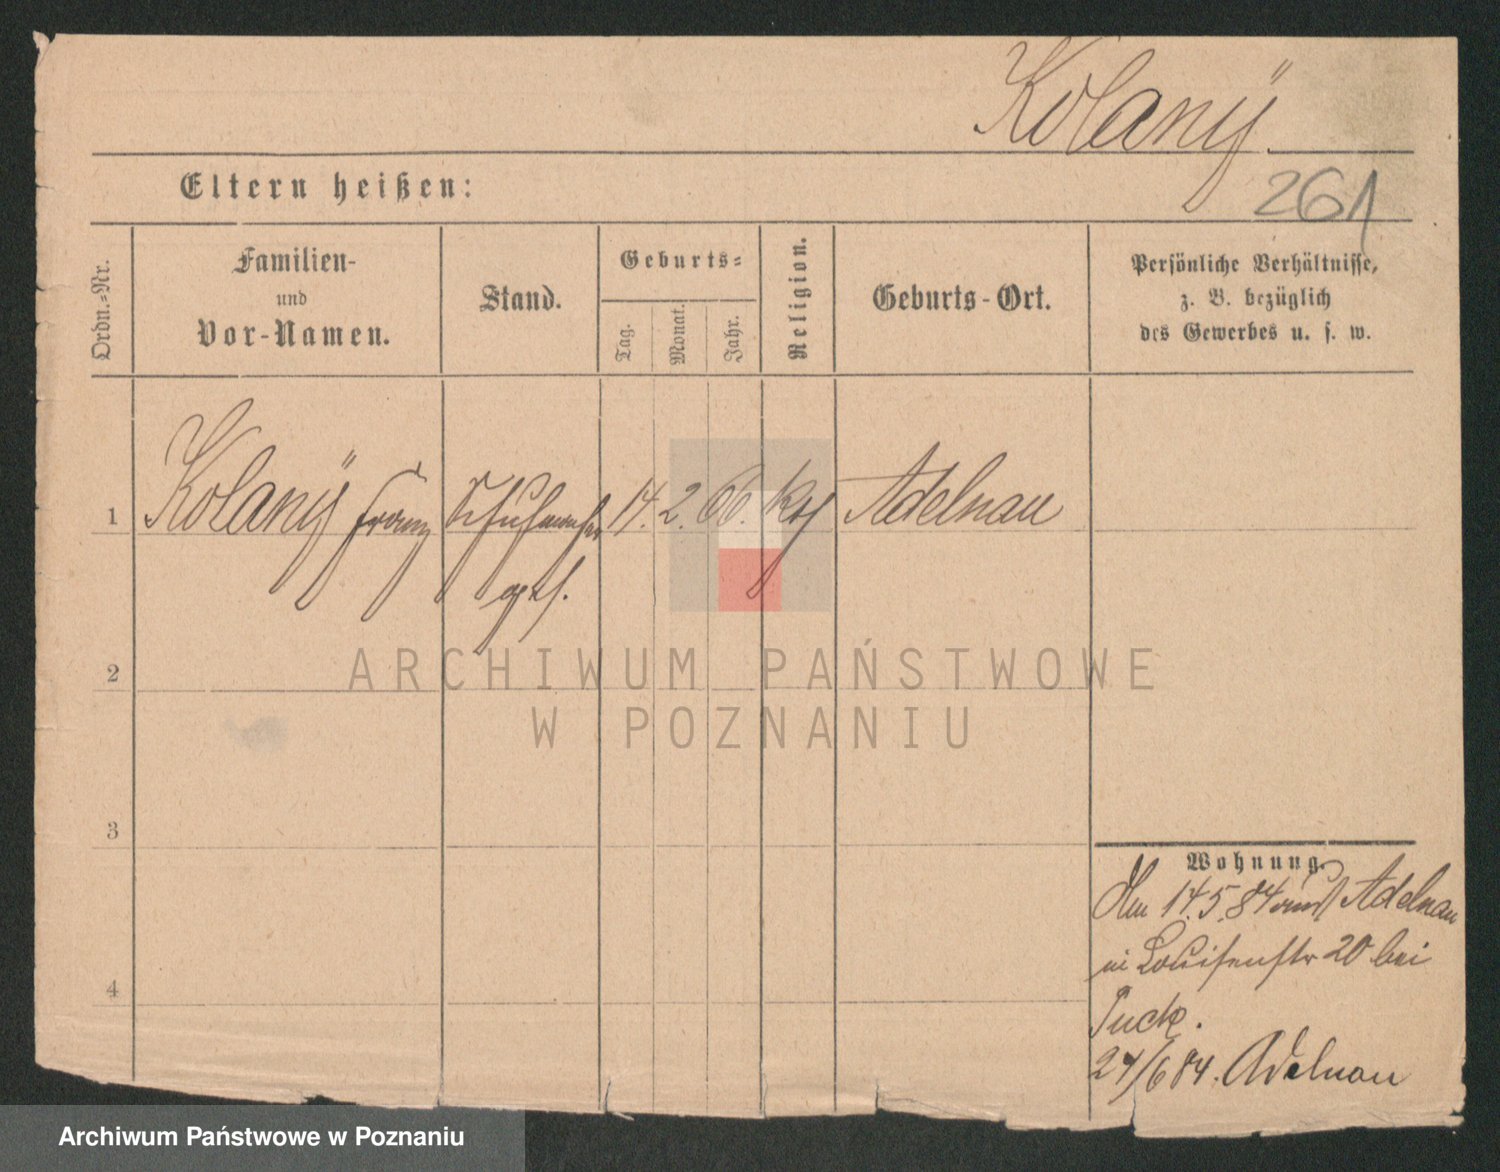 Kolanÿ
261
Eltern heißen:
Ordn.-Nr.
Familien-
und
Vor-Namen.
Stand.
Geburts-
Tag.
Monat.
Jahr.
Religion.
Geburts-Ort.
Persönliche Verhältnisse,
z. B. bezüglich
des Gewerbes u. s. w.
1 Kolanÿ Franz Schuhmacher 14. 2. 66. kth Adelnau
2
3
4
ARCHIWUM PAŃSTWOWE
W POZNANIU
Wohnung.
14.5.84 aus Adelnau
in Louisenstr 20 bei
Tuck.
24/6 84. Adelnau
Archiwum Państwowe w Poznaniu